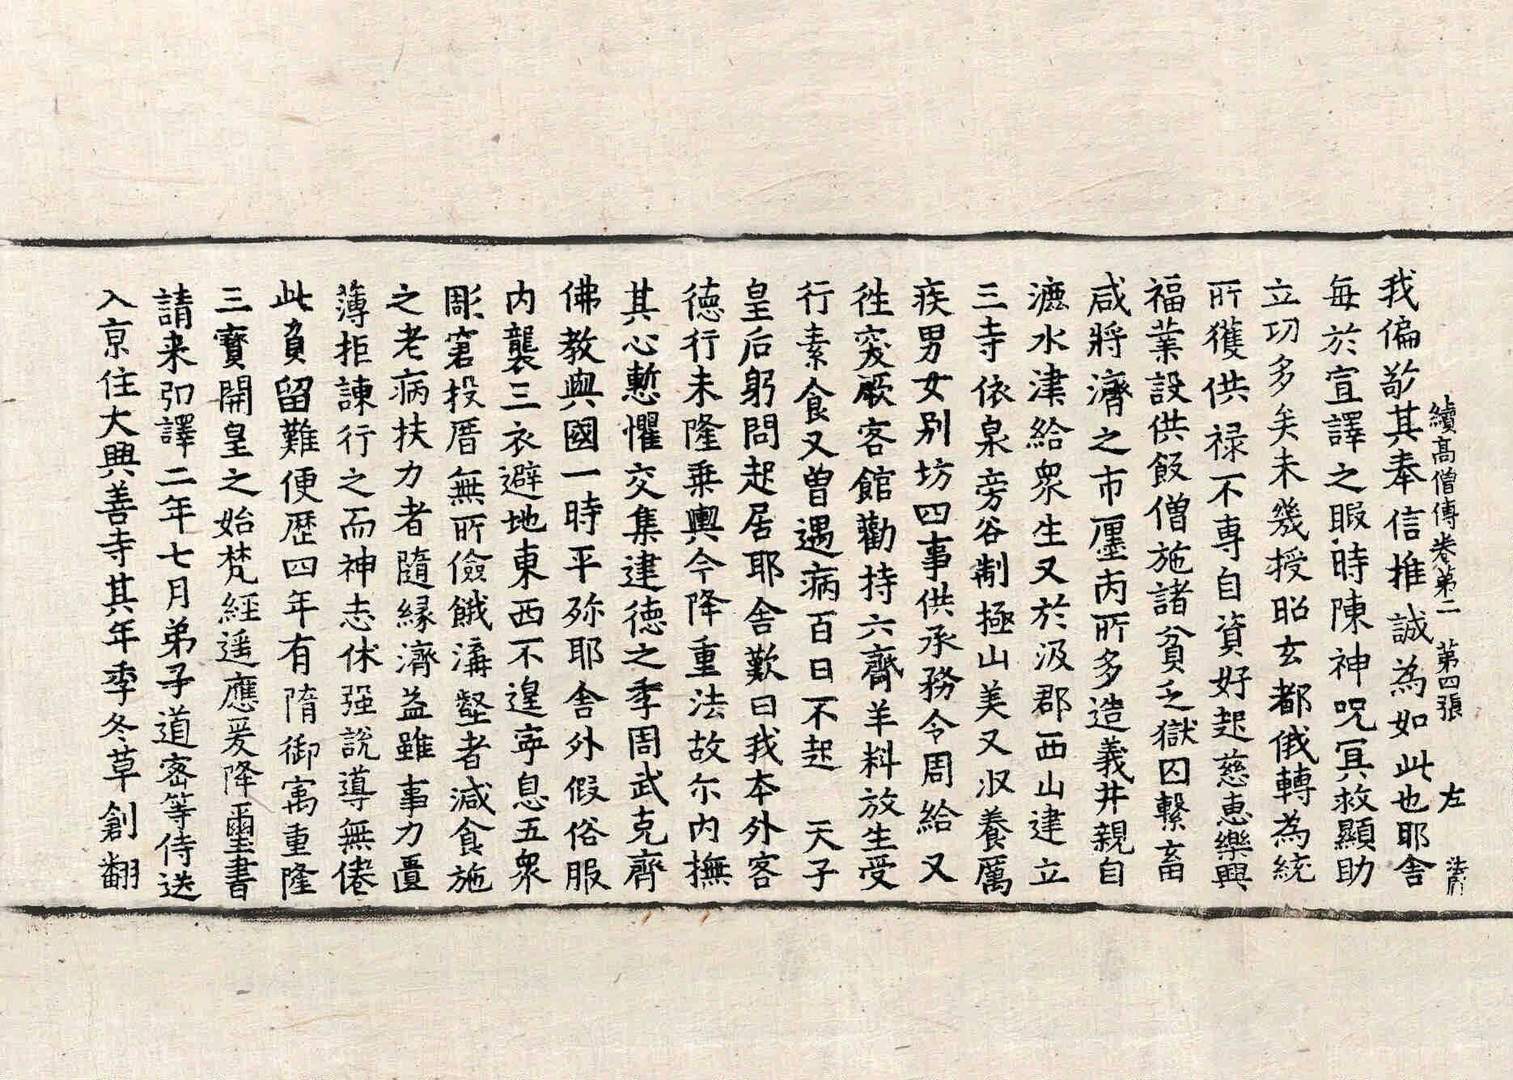 續高僧傳卷第二　第四張　左
我偏敬其奉信推誠為如此也耶舎
每於宣譯之暇時陳神呪冥救顯助
立功多矣未幾授昭玄都俄轉為統
所獲供禄不専自資好起慈惠樂興
福業設供飯僧施諸貧乏獄囚繫畜
咸將濟之市廛内所多造義井親自
漉水津給衆生又於汲郡西山建立
三寺依泉旁谷制極山美又収養厲
疾男女别坊四事供承務令周給又
徃突厥客館勸持六齋羊料放生受
行素食又曽遇病百日不起　天子
皇后躬問起居耶舎歎曰我本外客
德行未隆乗輿今降重法故尓内撫
其心慙懼交集建德之季周武克齊
佛教與國一時平殄耶舎外假俗服
内襲三衣避地東西不遑寧息五衆
彫窘投厝無所儉餓溝壑者減食施
之老病扶力者隨縁濟益雖事力匱
薄拒諫行之而神志休强說導無倦
此負留難便歴四年有隋御㝢重隆
三寳開皇之始梵經遥應爰降璽書
請来弘譯二年七月弟子道密等侍送
入京住大興善寺其年季冬草創翻